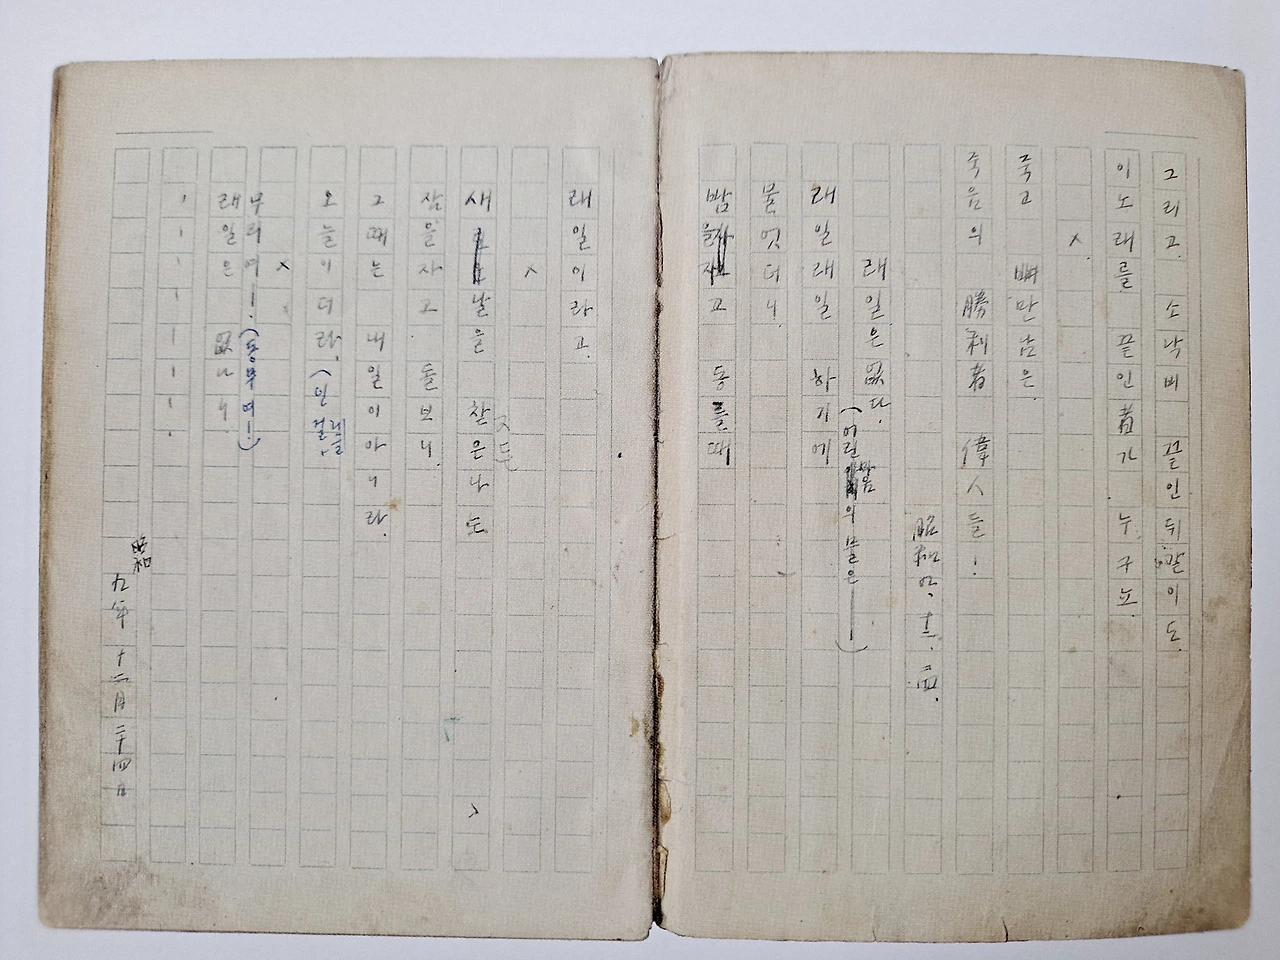 그리고 소낙비 끌인뒤같이도
이노래를 끝인者가 누구뇨.
×
죽고 뼈만남은
죽음의 勝利者 偉人들!
래일은없다.
(어린 마음의 물은——)
래일래일 하기에
물엇더니.
밤을자고 동틀때
래일이라고.
×
새날을 찾은나도
잠을자고 돌보니.
그때는 내일이아니라.
오늘이더라.
×
무리여—.
(동무여!—)
래일은 없나니.
昭和九年十二月二十四日